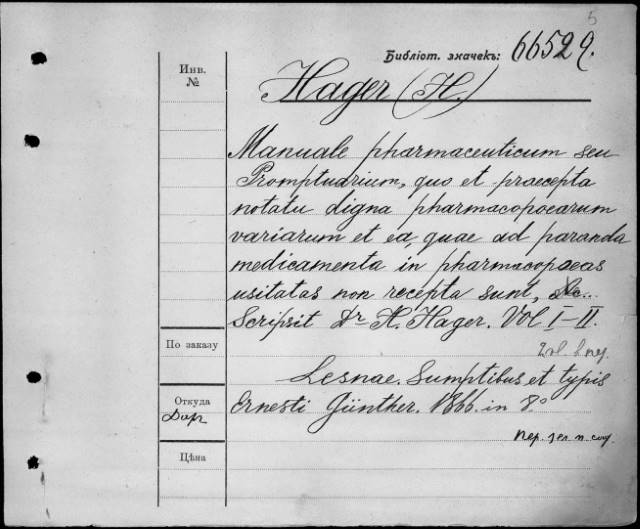 5
Библіот. значекъ: 66529.
Инв.
№
Hager (H.)
Manuale pharmaceuticum seu
Promptuarium, quo et praecepta
notatu digna pharmacopoearum
variarum et ea, quae ad paranda
medicamenta in pharmacopoeas
usitatas non recepta sunt,
Scripsit Dr H. Hager. Vol I–II.
По заказу
Lesnae. Sumptibus et typis
Откуда
Дар
Ernesti Günther. 1866. in 8.º
Цѣна